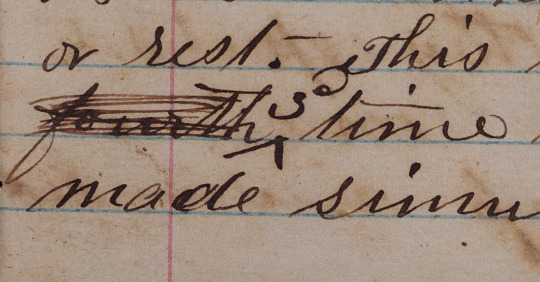 or rest. — This
fourth 3d time
made simu